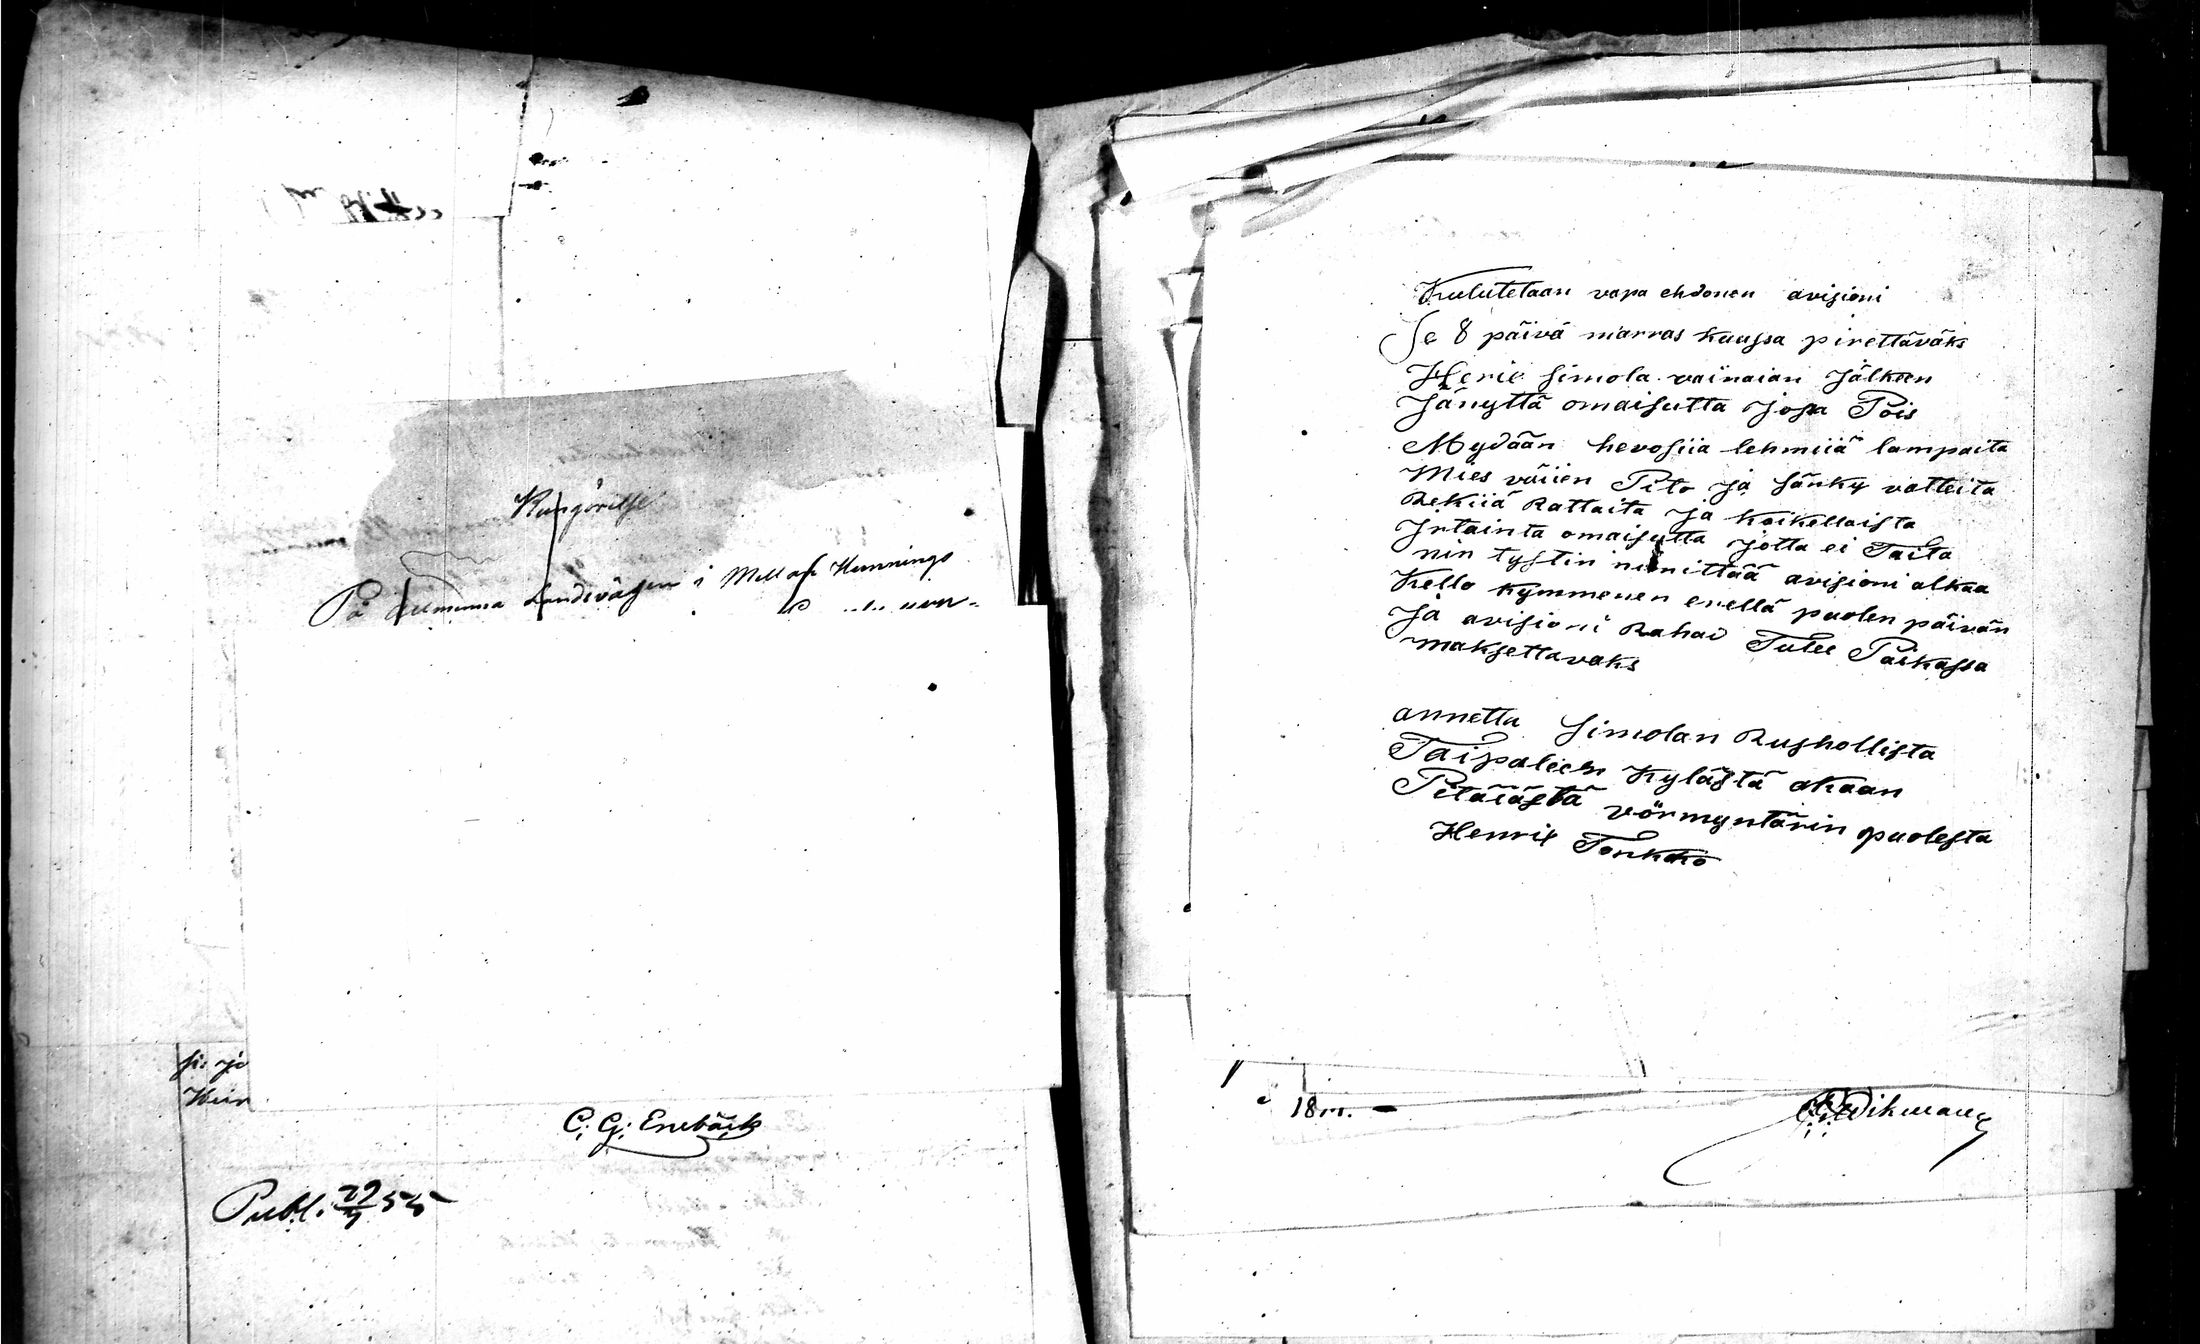 Kungörelse
På allmänna Landsvägen i Mellaf Hennings
si: jo
Heir
C. G. Enebäck
Publ. 29/4 55
Kulutetaan vapa ehdonen avisioni
Se 8 päivä marras kuussa pirettäväks
Heric Simola vainaian Jälkeen
Jänyttä omaisutta josa Pois
Mydään hevosiia lehmiiä lampaita
Mies väiien Pito ja sänky vatteita
Rekiiä Rattaita ja kaikellaista
Jrtainta omaisutta jotta ei Taita
nin tystin nimittää avisioni alkaa
Kello kymmenen erellä puolen päivän
Ja avisioni Rahad Tulee Paikassa
maksettavaks
annettu Simolan Rushollista
Taipaleen Kylästä akaan
Pitäiästä vörmyntärin puolesta
Henric Tonkko
18
Wikman